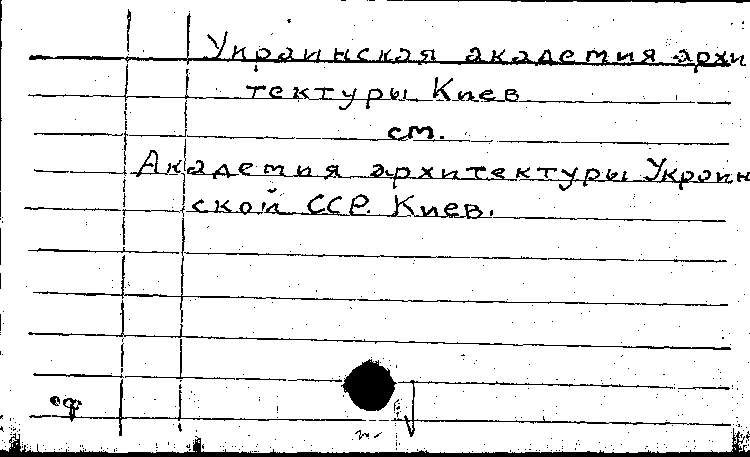 Украинская академия архи
тектуры Киев
см.
Академия архитектуры Украин
ской ССР. Киев.
оф